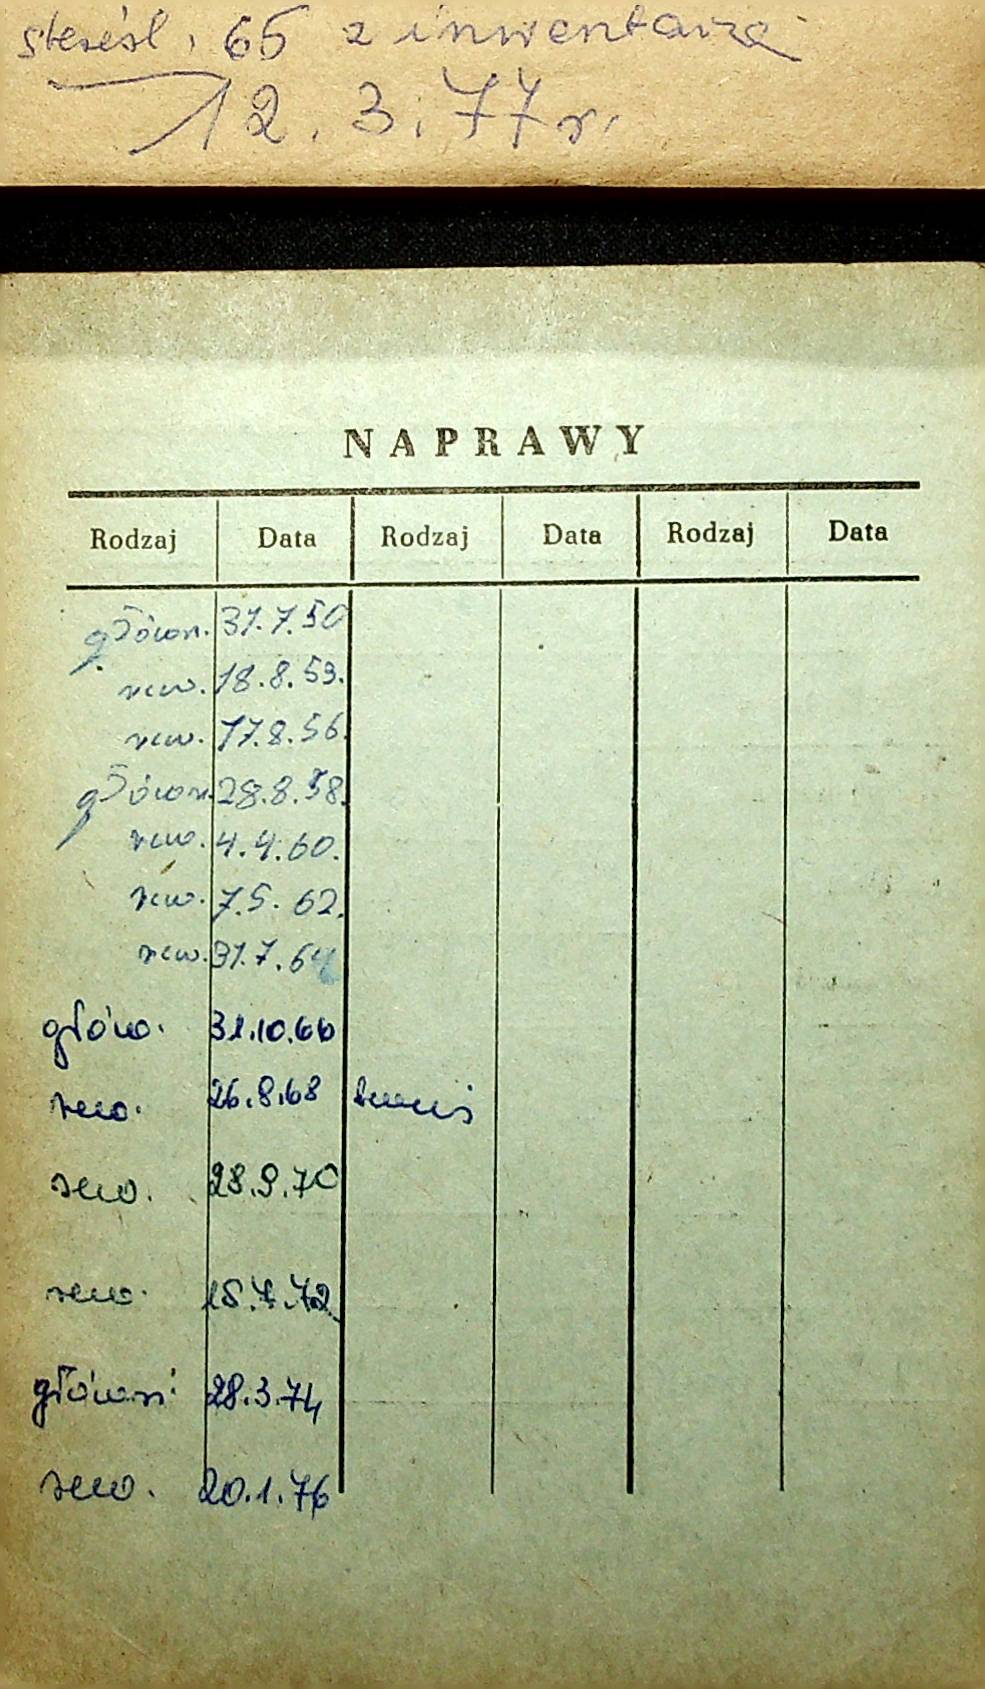 skreśl. 65 z inwentarza
12.3.77 r.
NAPRAWY
Rodzaj Data Rodzaj Data Rodzaj Data
główn. 31.7.50
rew. 18.8.53.
rew. 17.8.56.
główn. 28.8.58.
rew. 4.4.60.
rew. 7.5.62.
rew. 31.7.64
główn. 31.10.66
rew. 26.8.68
rew. 28.9.70
rew. 15.7.72
główn. 28.3.74
rew. 20.1.76